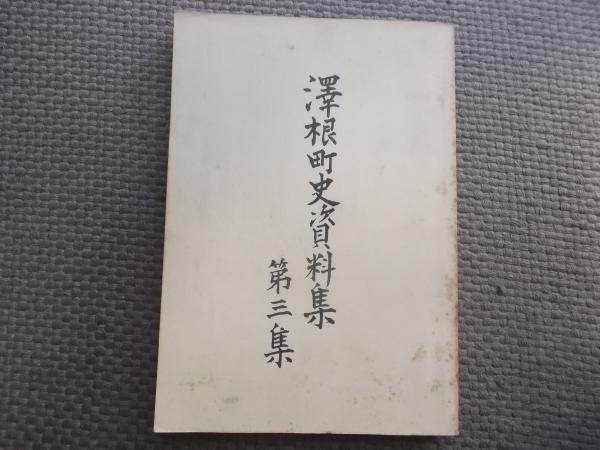 澤根町史資料集
第三集